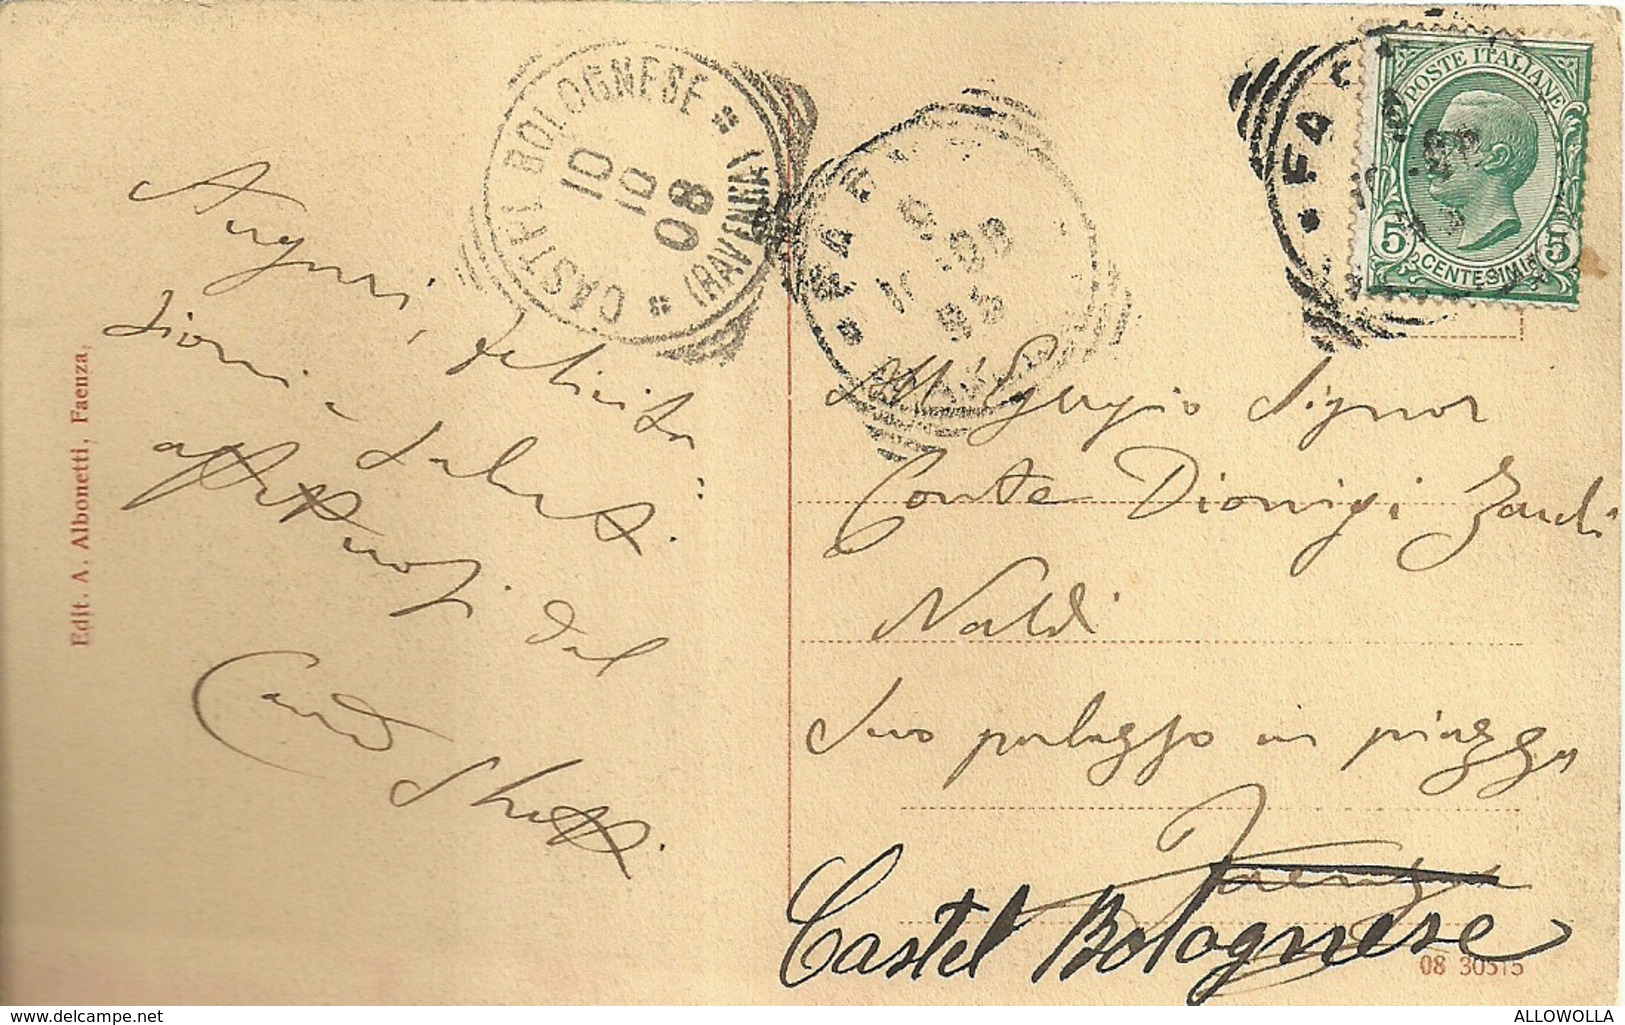 Auguri, felicita-
zioni e saluti
affettuosi dal
Conte
Edit. A. Albonetti, Faenza.
CASTEL BOLOGNESE
10
10
08
(RAVENNA)
FA
POSTE ITALIANE
5 CENTESIMI 5
All' Egregio Signor
Conte Dionigi Zauli
Naldi
Suo palazzo in piazza
Faenza
Castel Bolognese
08 30515
delcampe.net
ALLOWOLLA